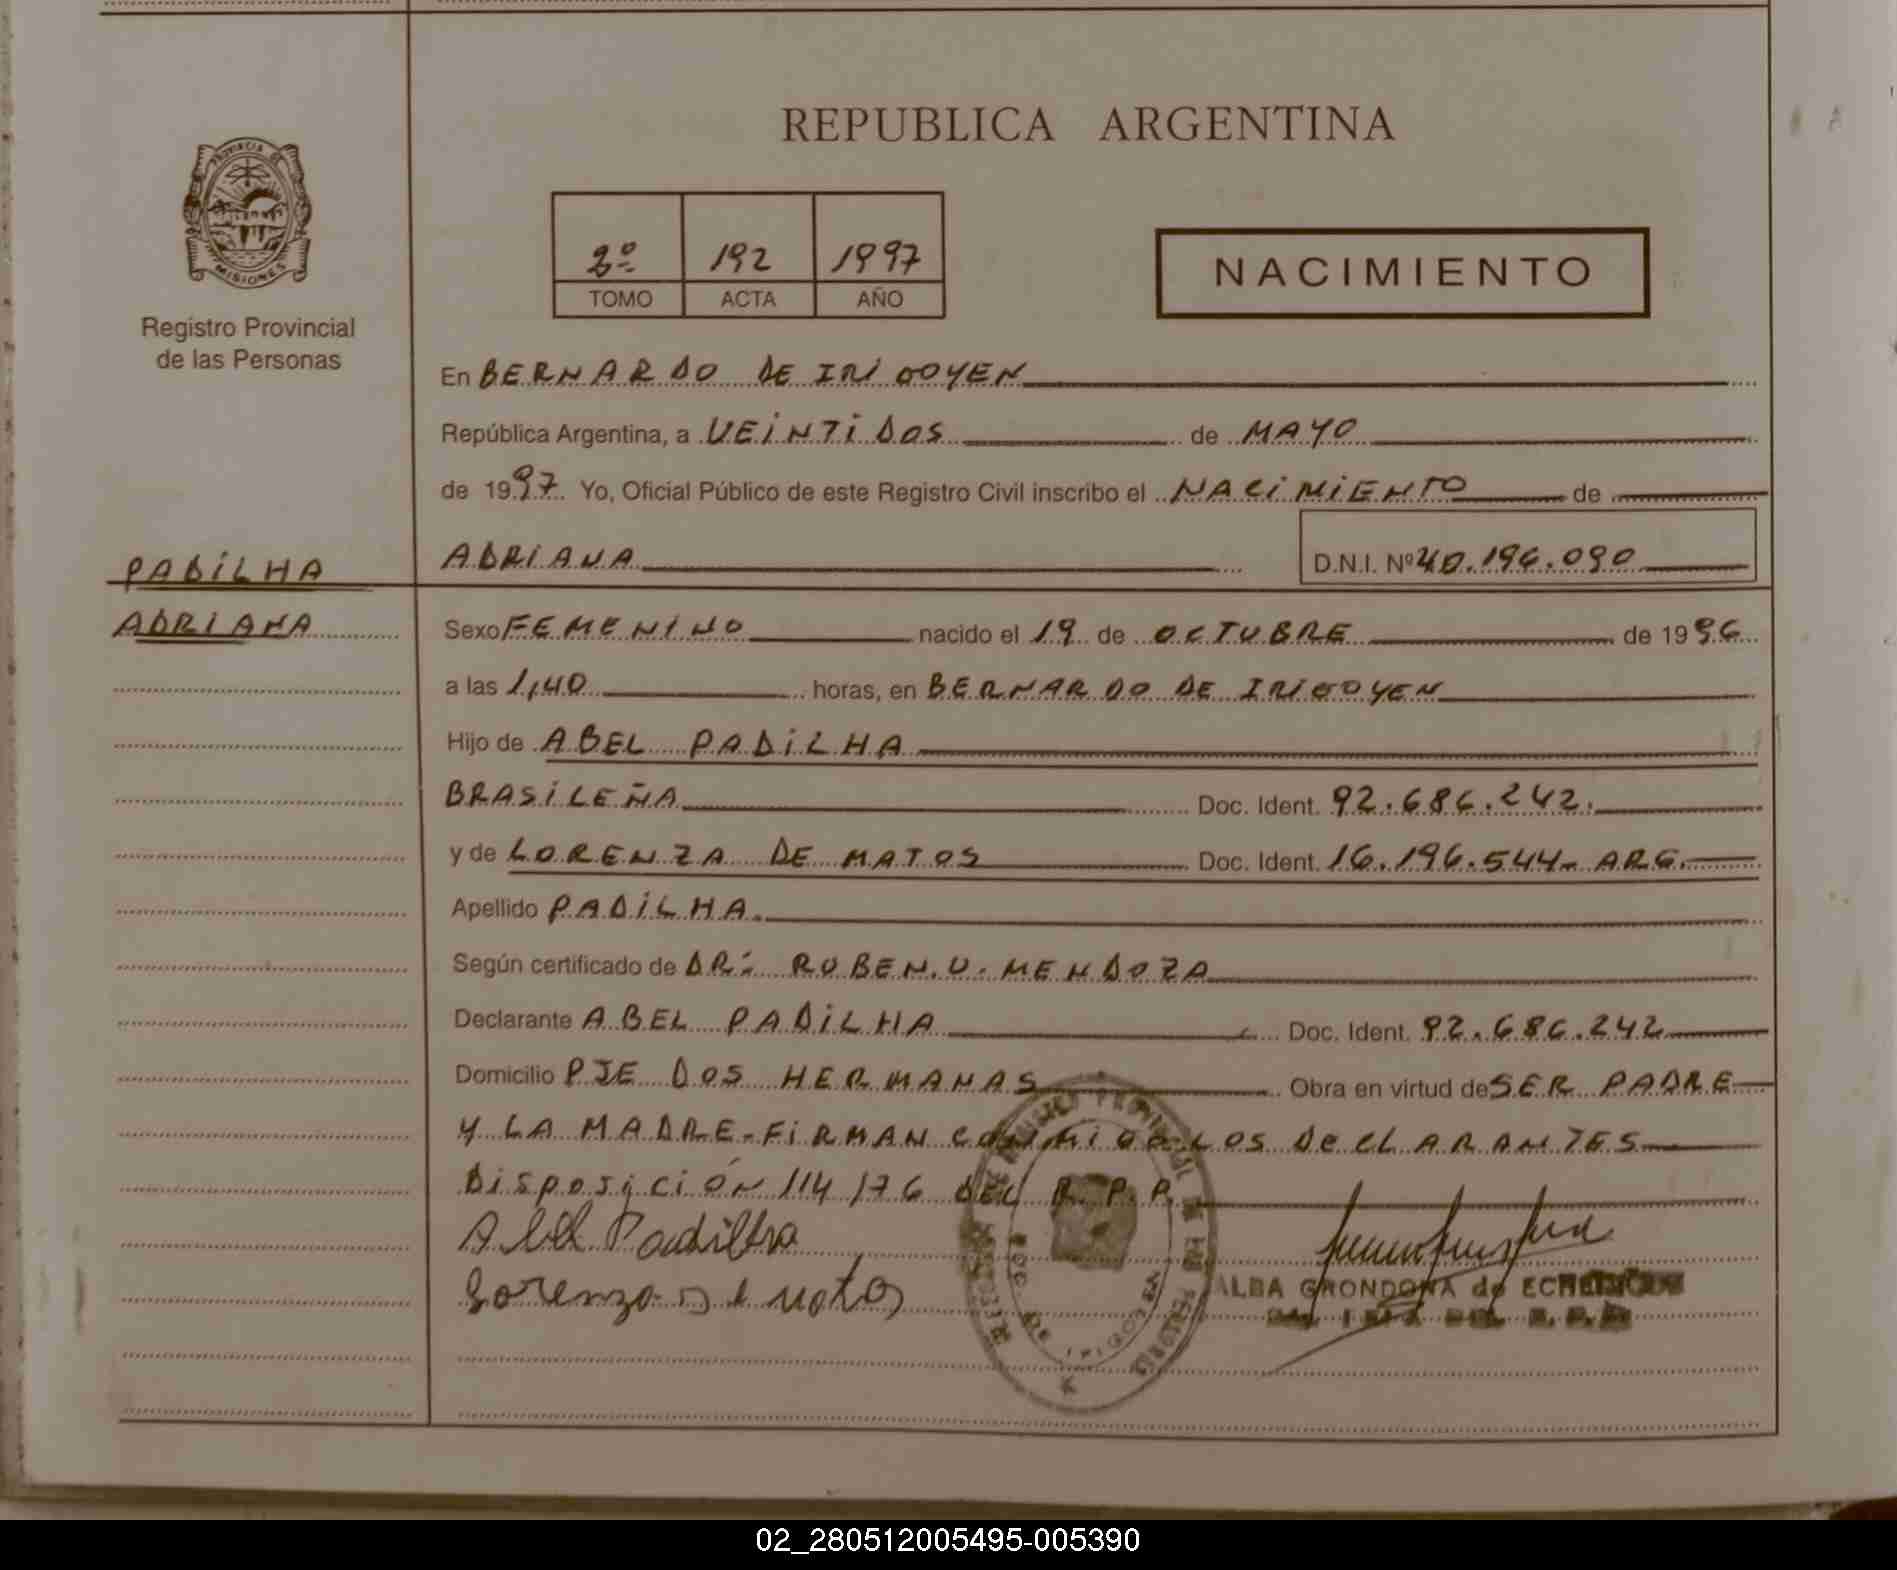 REPUBLICA ARGENTINA
PROVINCIA DE
MISIONES
Registro Provincial
de las Personas
2º 192 1997
TOMO ACTA AÑO
NACIMIENTO
En BERNARDO DE IRIGOYEN
República Argentina, a VEINTIDOS de MAYO
de 1997. Yo, Oficial Público de este Registro Civil inscribo el NACIMIENTO de
PADILHA
ADRIANA
ADRIANA D.N.I. Nº 40.196.090
Sexo FEMENINO nacido el 19 de OCTUBRE de 1996
a las 1,40 horas, en BERNARDO DE IRIGOYEN
Hijo de ABEL PADILHA
BRASILEÑA Doc. Ident. 92.686.242.
y de LORENZA DE MATOS Doc. Ident. 16.196.544- ARG.
Apellido PADILHA.
Según certificado de DR: RUBEN.U. MENDOZA
Declarante ABEL PADILHA Doc. Ident. 92.686.242
Domicilio PJE DOS HERMANAS Obra en virtud de SER PADRE
Y LA MADRE-FIRMAN CONMIGO LOS DECLARANTES
DISPOSICIÓN 114/76 DEL R.P.P.
Abel Padilha
Lorenza de matos
ALBA GRONDONA de
02_280512005495-005390